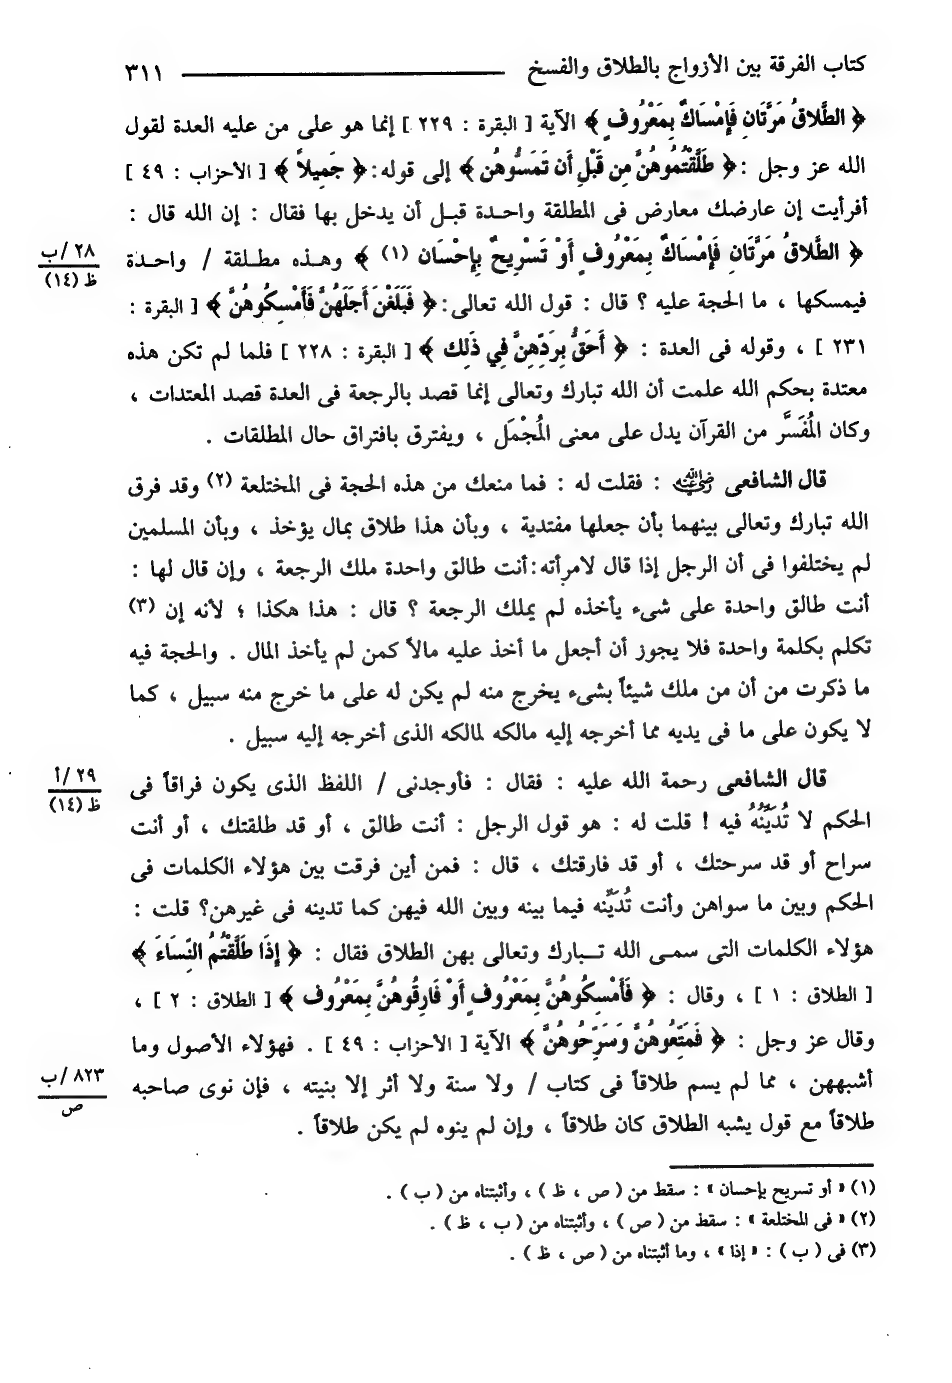 كتاب الفرقة بين الأزواج بالطلاق والفسخ ٣١١
﴿ الطَّلاقُ مَرَّتَانِ فَإِمْسَاكٌ بِمَعْرُوفٍ ﴾ الآية [ البقرة : ٢٢٩ ] إنما هو على من عليه العدة لقول
الله عز وجل : ﴿ طَلَّقْتُمُوهُنَّ مِن قَبْلِ أَن تَمَسُّوهُن ﴾ إلى قوله: ﴿ جَمِيلاً ﴾ [ الأحزاب : ٤٩ ]
أفرأيت إن عارضك معارض فى المطلقة واحدة قبل أن يدخل بها فقال : إن الله قال :
﴿ الطَّلاقُ مَرَّتَانِ فَإِمْسَاكٌ بِمَعْرُوفٍ أَوْ تَسْرِيحٌ بِإِحْسَان (١) ﴾ وهذه مطلقة / واحدة
٢٨ /ب
ظ (١٤)
فيمسكها ، ما الحجة عليه ؟ قال : قول الله تعالى: ﴿ فَبَلَغْنَ أَجَلَهُنَّ فَأَمْسِكُوهُنَّ ﴾ [ البقرة :
٢٣١ ] ، وقوله فى العدة : ﴿ أَحَقُّ بِرَدِّهِنَّ فِي ذَلِكَ ﴾ [ البقرة : ٢٢٨ ] فلما لم تكن هذه
معتدة بحكم الله علمت أن الله تبارك وتعالى إنما قصد بالرجعة فى العدة قصد المعتدات ،
وكان المُفَسَّر من القرآن يدل على معنى المُجْمَل ، ويفترق بافتراق حال المطلقات .
قال الشافعى رضي الله عنه : فقلت له : فما منعك من هذه الحجة فى المختلعة (٢) وقد فرق
الله تبارك وتعالى بينهما بأن جعلها مفتدية ، وبأن هذا طلاق بمال يؤخذ ، وبأن المسلمين
لم يختلفوا فى أن الرجل إذا قال لامرأته: أنت طالق واحدة ملك الرجعة ، وإن قال لها :
أنت طالق واحدة على شىء يأخذه لم يملك الرجعة ؟ قال : هذا هكذا ؛ لأنه إن (٣)
تكلم بكلمة واحدة فلا يجوز أن أجعل ما أخذ عليه مالاً كمن لم يأخذ المال . والحجة فيه
ما ذكرت من أن من ملك شيئاً بشىء يخرج منه لم يكن له على ما خرج منه سبيل ، كما
لا يكون على ما فى يديه مما أخرجه إليه مالكه لمالكه الذى أخرجه إليه سبيل .
قال الشافعى رحمة الله عليه : فقال : فأوجدنى / اللفظ الذى يكون فراقاً فى
٢٩ /أ
ظ (١٤)
الحكم لا تُدَيِّنُهُ فيه ! قلت له : هو قول الرجل : أنت طالق ، أو قد طلقتك ، أو أنت
سراح أو قد سرحتك ، أو قد فارقتك ، قال : فمن أين فرقت بين هؤلاء الكلمات فى
الحكم وبين ما سواهن وأنت تُدَيِّنه فيما بينه وبين الله فيهن كما تدينه فى غيرهن؟ قلت :
هؤلاء الكلمات التى سمى الله تبارك وتعالى بهن الطلاق فقال : ﴿ إِذَا طَلَّقْتُمُ النِّسَاءَ ﴾
[ الطلاق : ١ ] ، وقال : ﴿ فَأَمْسِكُوهُنَّ بِمَعْرُوفٍ أَوْ فَارِقُوهُنَّ بِمَعْرُوف ﴾ [ الطلاق : ٢ ] ،
وقال عز وجل : ﴿ فَمَتِّعُوهُنَّ وَسَرِّحُوهُنَّ ﴾ الآية [ الأحزاب : ٤٩ ] . فهؤلاء الأصول وما
أشبههن ، مما لم يسم طلاقاً فى كتاب / ولا سنة ولا أثر إلا بنيته ، فإن نوى صاحبه
٨٢٣ /ب
ص
طلاقاً مع قول يشبه الطلاق كان طلاقاً ، وإن لم ينوه لم يكن طلاقاً .
(١) « أو تسريح بإحسان » : سقط من ( ص ، ظ ) ، وأثبتناه من ( ب ) .
(٢) « فى المختلعة » : سقط من ( ص ) ، وأثبتناه من ( ب ، ظ ) .
(٣) فى ( ب ) : « إذا » ، وما أثبتناه من ( ص ، ظ ) .